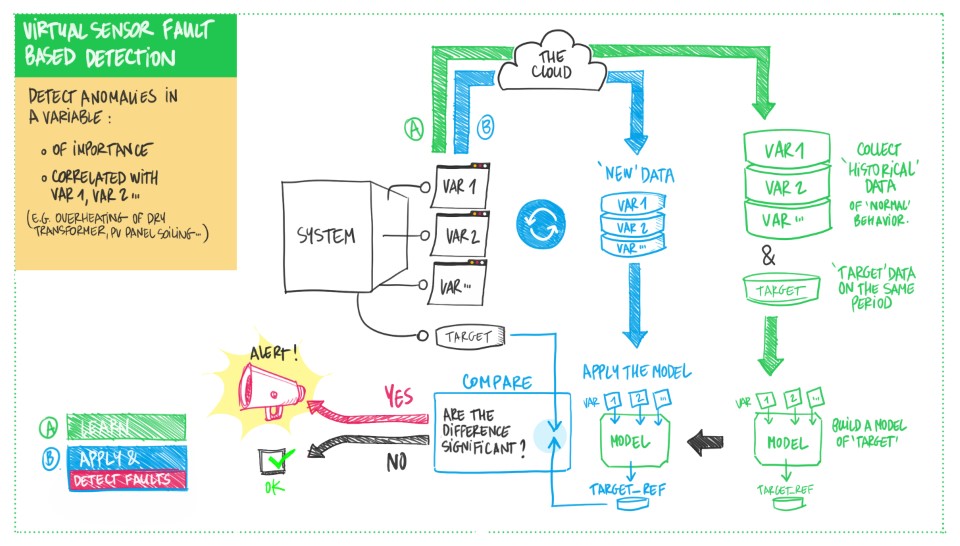 VIRTUAL SENSOR FAULT
BASED DETECTION
DETECT ANOMALIES IN
A VARIABLE :
OF IMPORTANCE
CORRELATED WITH
VAR 1, VAR 2 ...
(E.G. OVERHEATING OF DRY
TRANSFORMER, PV PANEL SOILING...)
THE
CLOUD
A
B
SYSTEM
VAR 1
VAR 2
VAR ...
TARGET
'NEW' DATA
VAR 1
VAR 2
VAR ...
VAR 1
VAR 2
VAR ...
COLLECT
'HISTORICAL'
DATA
OF 'NORMAL'
BEHAVIOR.
&
TARGET
'TARGET' DATA
ON THE SAME
PERIOD
ALERT!
YES
NO
OK
COMPARE
ARE THE
DIFFERENCE
SIGNIFICANT ?
APPLY THE MODEL
VAR 1 2 ...
MODEL
TARGET_REF
VAR 1 2 ...
MODEL
TARGET_REF
BUILD A MODEL
OF 'TARGET'
A LEARN
B APPLY &
DETECT FAULTS